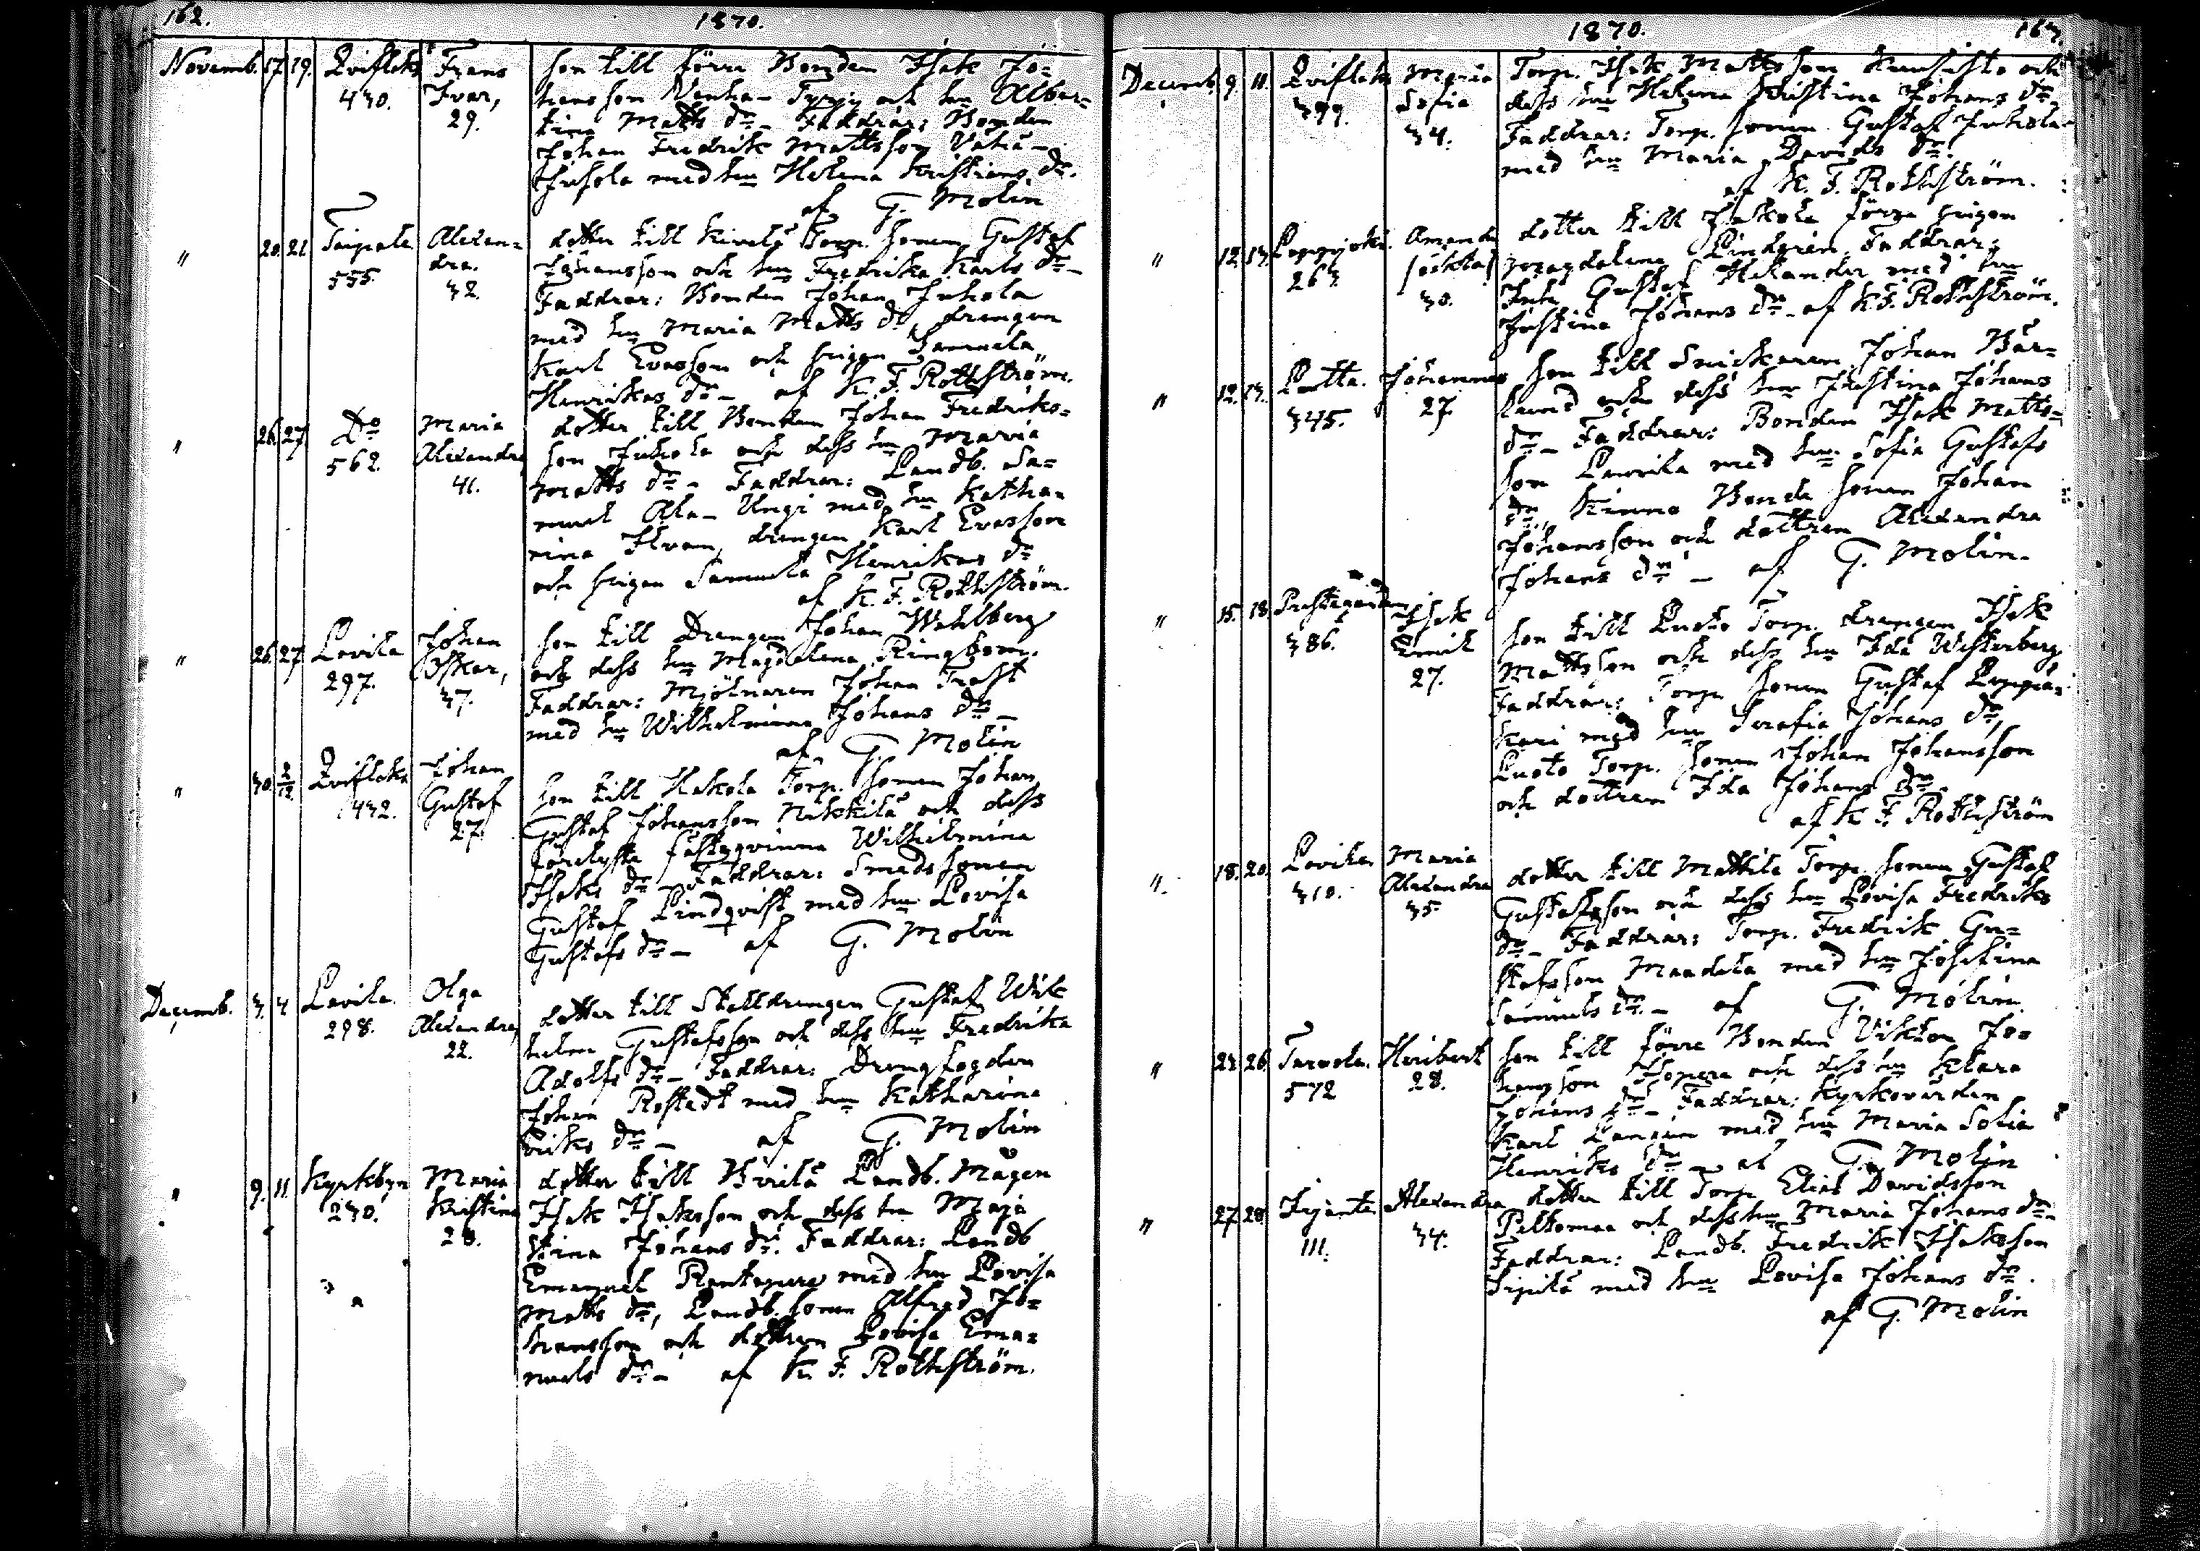 162.
1870.
Novemb. 17. 19. Qviflaks Frans son till förre Bonden Isak Jo=
430. Ivar, hansson Vanha- och hu Alber=
29. tina Matts dr. Faddrar: Bonden
Johan Fredrik Mattsson Vähä-
Jusola med hu Helena Kristians dr.
af G. Molin
" 20. 21. Taipale Alexan= dotter till Kivelä Torp. sonen Gustaf
555. dra. Johansson och hu Fredrika Karls dr.
32. Faddrar: Bonden Johan Juhola
med hu Maria Matts dr, drengen
Karl Evasson och pigan Samuela
Henrikas dr. af K. F. Rothström.
" 26. 27. Do Maria dotter till Bonden Johan Fredriks=
562. Alexandra son Juhola och dess hu Maria
41. Matts dr. Faddrar: Landb. Sa=
muel Ala- Ungi med hu Katha=
rina Ilvan, drengen Karl Evasson
och pigan Samuela Henrikas dr
af K. F. Rothström.
" 26. 27. Lavila Johan son till Drengen Johan Wahlberg
297. Oskar, och dess hu Magdalena Ringbom.
37. Faddrar: Mjölnaren Johan Trast
med hu Wilhelmina Johans dr
af G. Molin
" 30. 2/12. Qviflaks Johan son till Hakola Torp. sonen Johan
432. Gustaf Gustaf Johansson Nikkilä och dess
27. förelysta fästeqvinna Wilhelmina
Isaks dr. Faddrar: Smedssonen
Gustaf Lindqvist med hu Lovisa
Gustafs dr. af G. Molin
Decemb. 3. 4 Lavila Olga dotter till Stalldrengen Gustaf Wil
298. Alexandra, helm Gustafsson och dess hu Fredrika
22. Adolfs dr. Faddrar: Drengfogden
Johan Rostedt med hu Katharina
Eriks dr. af G. Molin
" 9. 11. Kyrkbyn Maria dotter till Virilä Landb. Mågen
230. Kristina Isak Isaksson och dess hu Maja
28. Stina Johans dr. Faddrar: Landb
Emanuel Rantapere med hu Lovisa
Matts dr, Landb. sonen Alfred Jo=
hansson och dottren Lovisa Ema=
nuels dr. af K. F. Rothström.
1870.
163.
Decemb. 9. 11. Qviflaks Maria Torp. Isak Mattsson Kuusisto och
399. Sofia dess hu Helena Kristina Johans dr
34. Faddrar: Torp. sonen Gustaf Juhola
med hu Maria Davids dr.
af K. F. Rothström.
" 12. 13. Lappijoki. Amanda dotter till Jaakola förra pigan
263 (oäkta) Magdalena Lindgrén. Faddrar:
30. Inh. Gustaf Helander med hu
Justina Johans dr. af K. F. Rothström.
" 12. 13. Lutta. Johannes son till Snickaren Johan Bär=
345. 27. lund och dess hu Justina Johans
dr. Faddrar: Bonden Isak Matts=
son Laurila med hu Sofia Gustafs
dr, Kinno Bonda sonen Johan
Johansson och dottren Alexandra
Johans dr. af G. Molin.
" 15. 18. Prestegården Isak son till Luoto Torp. drengen Isak
386. Emil Mattsson och dess hu Ida Westerberg
27. Faddrar: Torp. sonen Gustaf
med hu Serafia Johans dr,
Luoto Torp. sonen Johan Johansson
och dottren Ida Johans dr.
af K F. Rothström
" 18. 20. Lavila Maria dotter till Mattila Torp. sonen Gustaf
310. Alexandra Gustafsson och dess hu Lovisa Fredriks
35. dr. Faddrar: Torp. Fredrik Gu=
stafsson Maadela med hu Josefina
Samuels dr. af G. Molin.
" 23. 26. Tarvola. Heribert son till förre Bonden Viktor Jo=
572 28. hansson Isopere och dess hu Klara
Johans dr. Faddrar: Kyrkovärden
Karl Langén med hu Maria Sofia
Henriks dr. af G. Molin
" 27. 28. Irjante. Alexandra dotter till Torp. Elias Davidsson
111. 34. Peltomaa och dess hu Maria Johans dr.
Faddrar: Landb. Fredrik Isaksson
Sipilä med hu Lovisa Johans dr.
af G. Molin